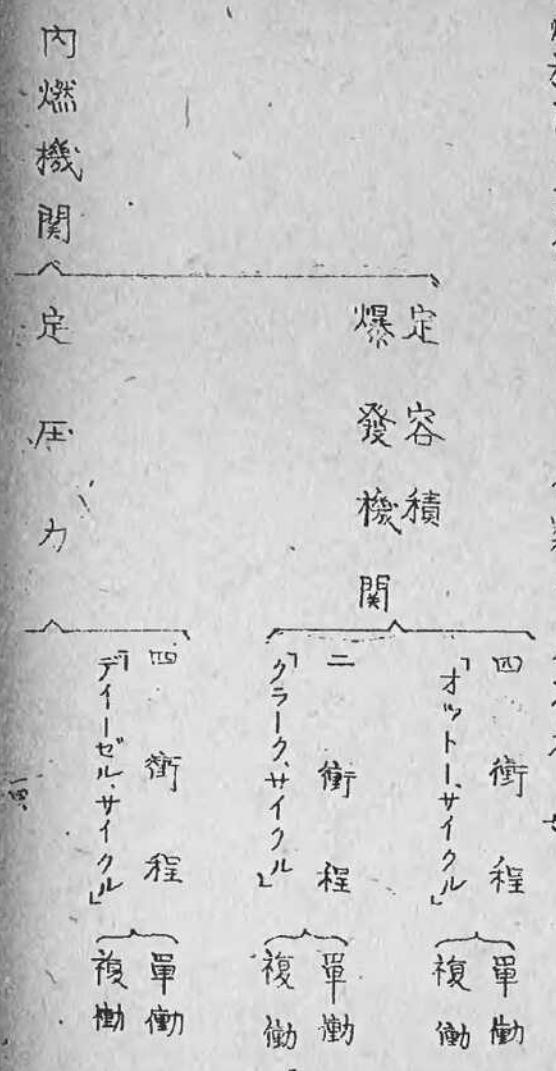 内燃機関
定容積
爆發機関
四衝程
「オットー、サイクル」
單働
複働
二衝程
「クラーク、サイクル」
單働
複働
定圧力
四衝程
「デイーゼル、サイクル」
單働
複働